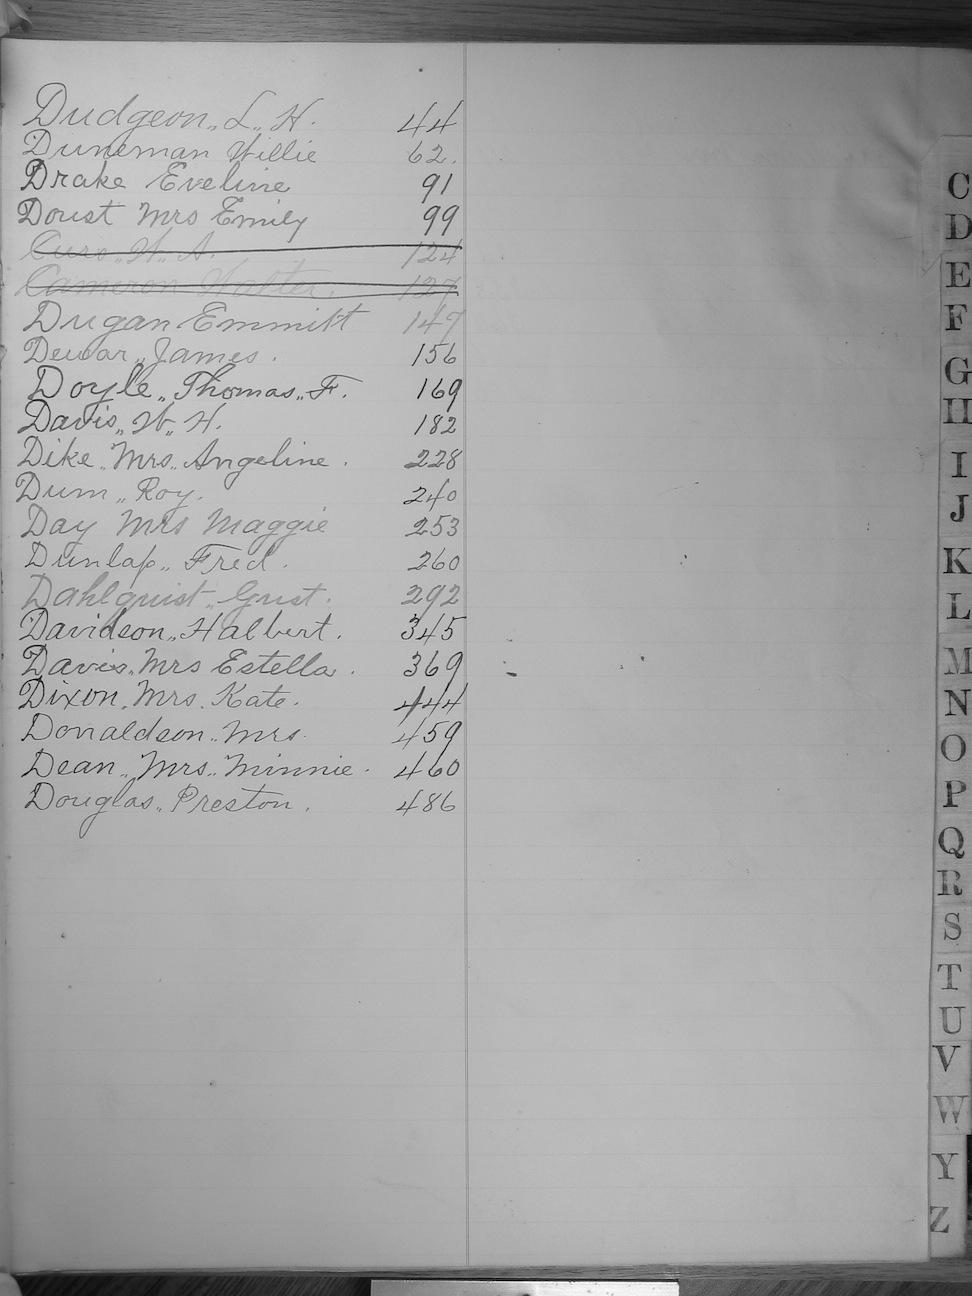 Dudgeon,, L,, H. 44
Duneman Willie 62.
Drake Eveline 91
Doust Mrs Emily 99
W. A. 124
Cameron Walter. 127
Dugan Emmitt 147
Dewar,, James. 156
Doyle,, Thomas,, F. 169
Davis,, W,, H. 182
Dike,, Mrs,, Angeline. 228
Dum,, Roy. 240
Day Mrs Maggie 253
Dunlap,, Fred. 260
Dahlquist,, Gust. 292
Davidson,, Halbert. 345
Davis,, Mrs Estella. 369
Dixon,, Mrs. Kate. 444
Donaldson,, Mrs. 459
Dean,, Mrs,, Minnie. 460
Douglas,, Preston. 486
C
D
E
F
G
H
I
J
K
L
M
N
O
P
Q
R
S
T
U
V
W
Y
Z